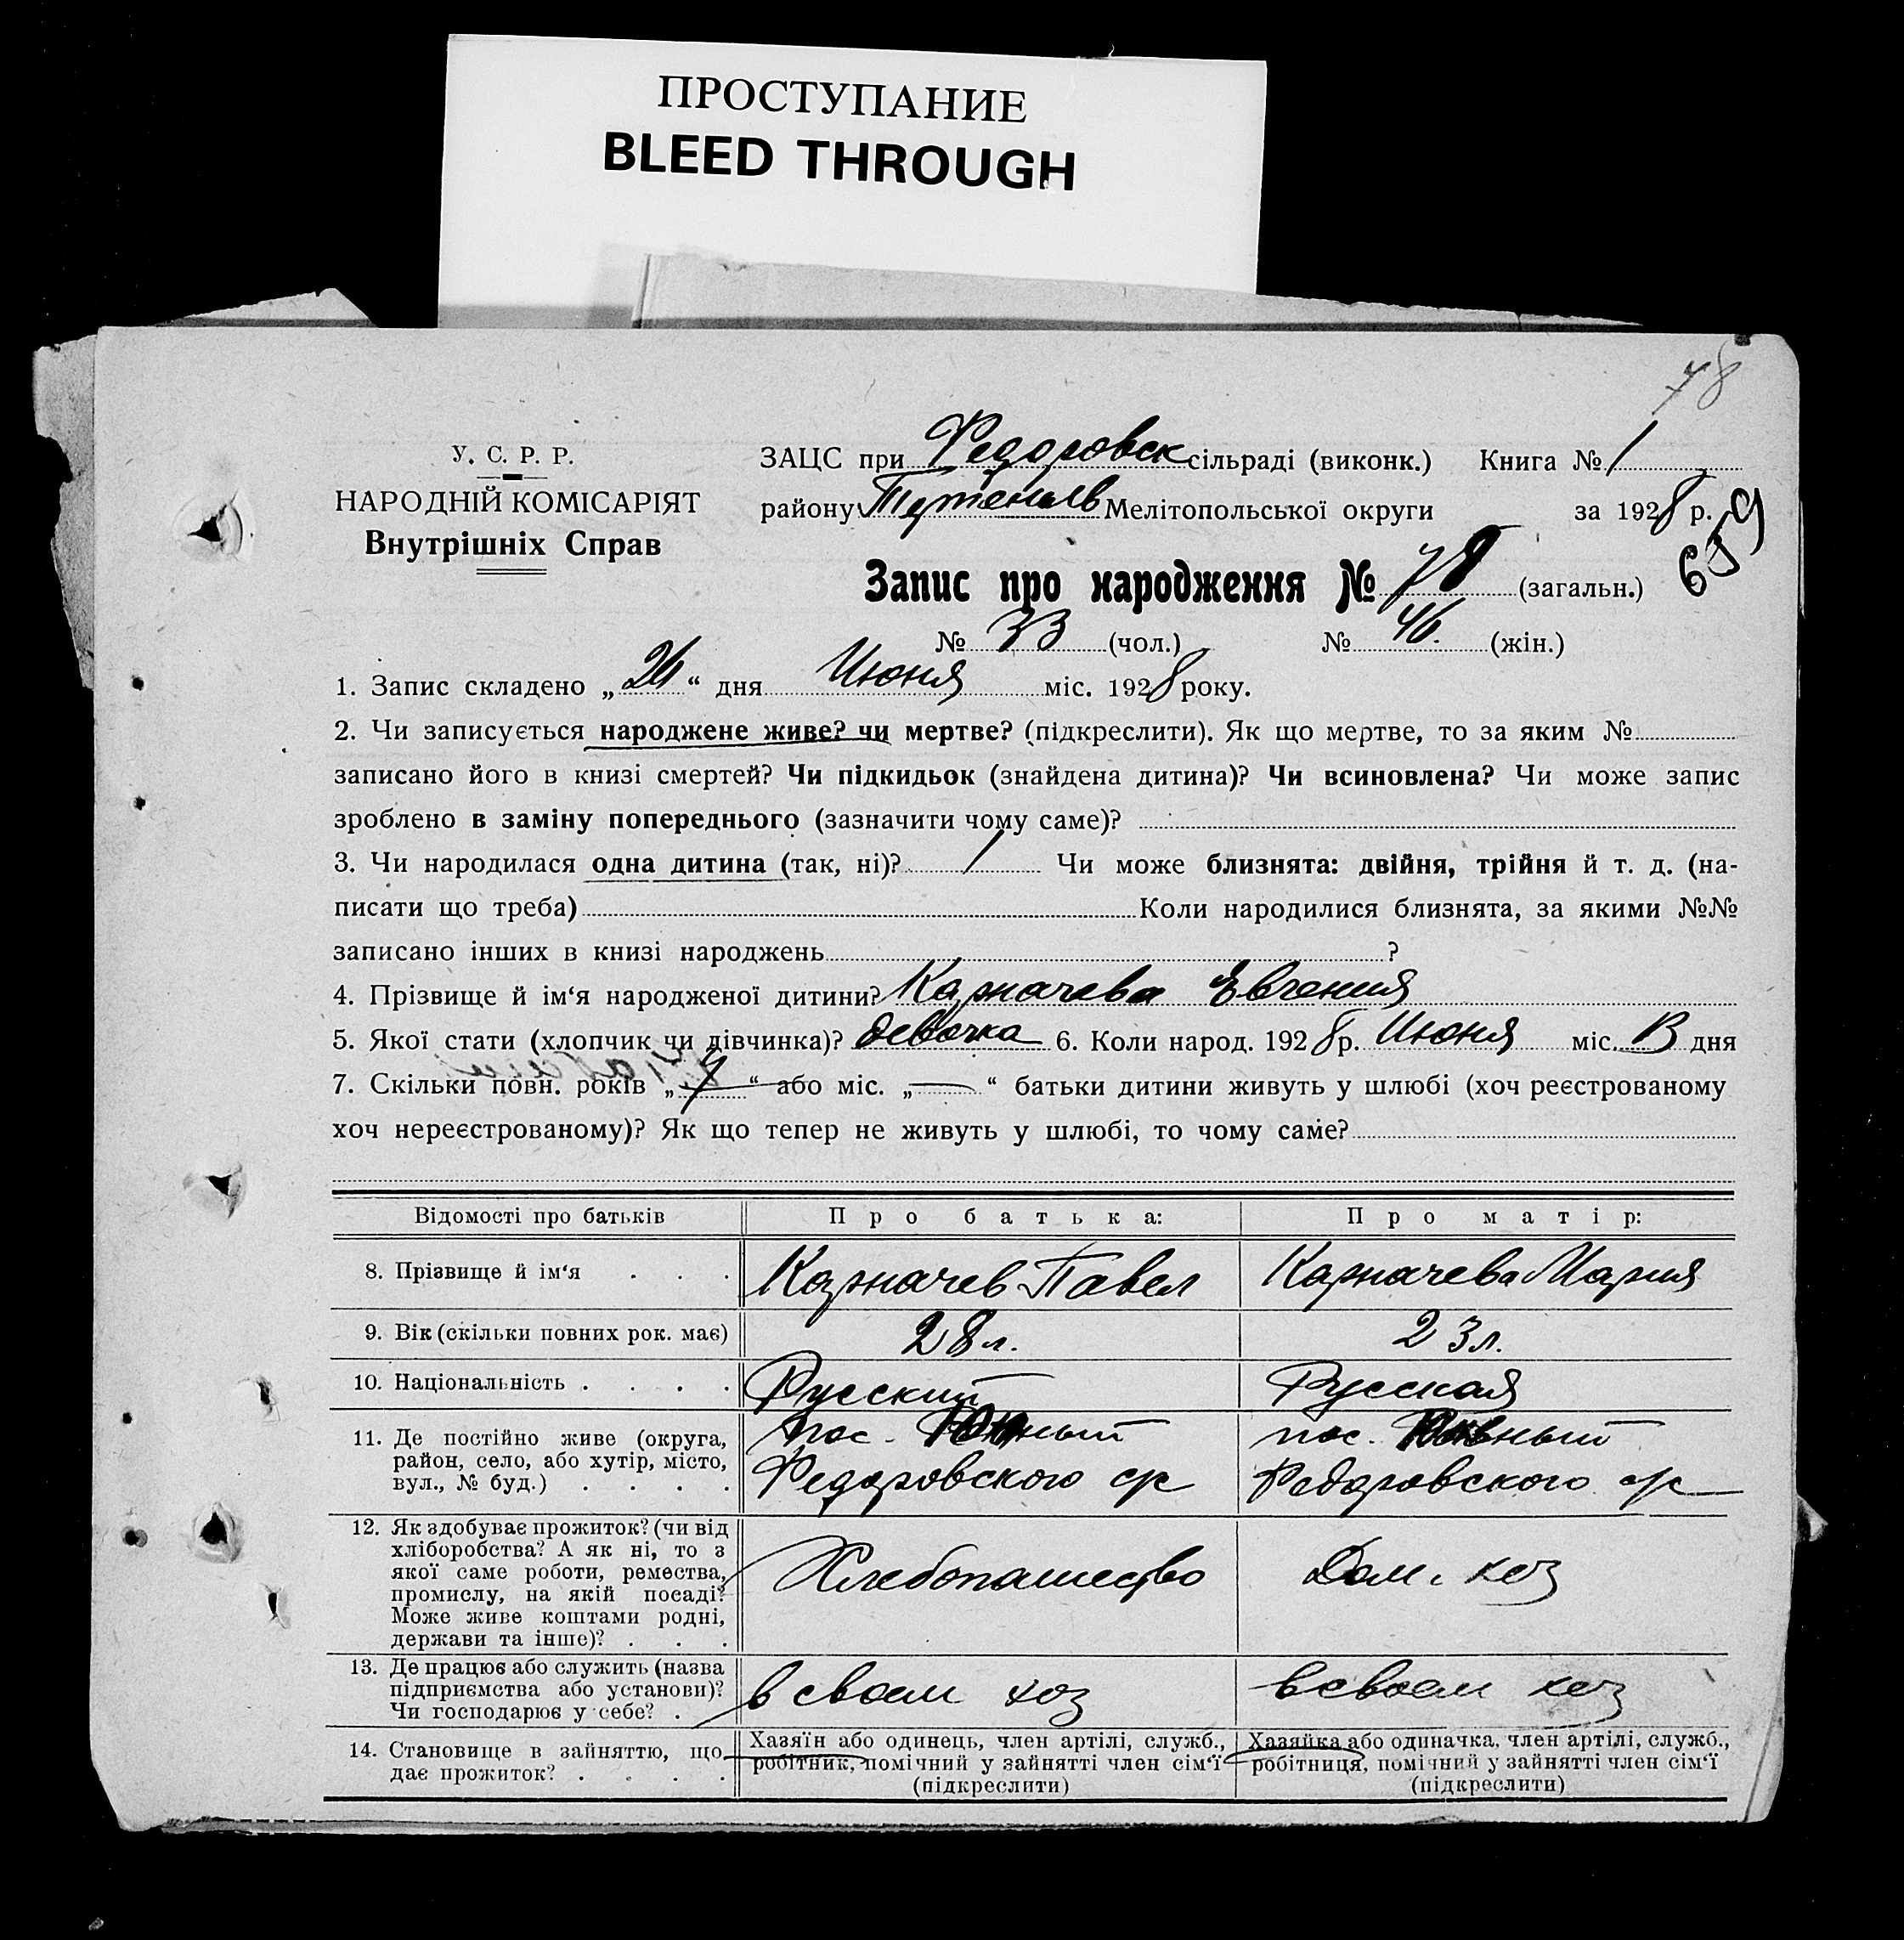 ПРОСТУПАНИЕ
BLEED THROUGH
78
У. С. Р. Р.
НАРОДНІЙ КОМІСАРІЯТ
Внутрішніх Справ
ЗАЦС при Федоровск сільраді (виконк.) Книга № 1
району Мелітопольської округи за 1928 р.
659
Запис про народження № 78 (загальн.)
№ 33 (чол.) № 46. (жін.)
1. Запис складено „26“ дня Июня міс. 1928 року.
2. Чи записується народжене живе? чи мертве? (підкреслити). Як що мертве, то за яким №
записано його в книзі смертей? Чи підкидьок (знайдена дитина)? Чи всиновлена? Чи може запис
зроблено в заміну попереднього (зазначити чому саме)?
3. Чи народилася одна дитина (так, ні)? 1 Чи може близнята: двійня, трійня й т. д. (на-
писати що треба) Коли народилися близнята, за якими №№
записано інших в книзі народжень ?
4. Прізвище й ім‘я народженої дитини? Казначева Евгения
5. Якої стати (хлопчик чи дівчинка)? девочка 6. Коли народ. 1928 р. Июня міс. 13 дня
7. Скільки повн. років „7“ або міс. „—“ батьки дитини живуть у шлюбі (хоч реєстрованому
хоч нереєстрованому)? Як що тепер не живуть у шлюбі, то чому саме?
Відомості про батьків Про батька: Про матір:
8. Прізвище й ім‘я . . . Казначев Павел Казначева Мария
9. Вік (скільки повних рок. має) 28 л. 23 л.
10. Національність . . . . Русский Русская
11. Де постійно живе (округа,
район, село, або хутір, місто,
вул., № буд.) . . . .
пос.
Федоровского с/с
пос.
Федоровского с/с
12. Як здобуває прожиток? (чи від
хліборобства? А як ні, то з
якої саме роботи, ремества,
промислу, на якій посаді?
Може живе коштами родні,
держави та інше)? . . .
Хлебопашество
Дом. хоз
13. Де працює або служить (назва
підприємства або установи)?
Чи господарює у себе? .
в своем хоз
в своем хоз
14. Становище в зайняттю, що
дає прожиток? . . . .
Хазяїн або одинець, член артілі, служб.,
робітник, помічний у зайнятті член сім‘ї
(підкреслити)
Хазяйка або одиначка, член артілі, служб.,
робітниця, помічний у зайнятті член сім‘ї
(підкреслити)